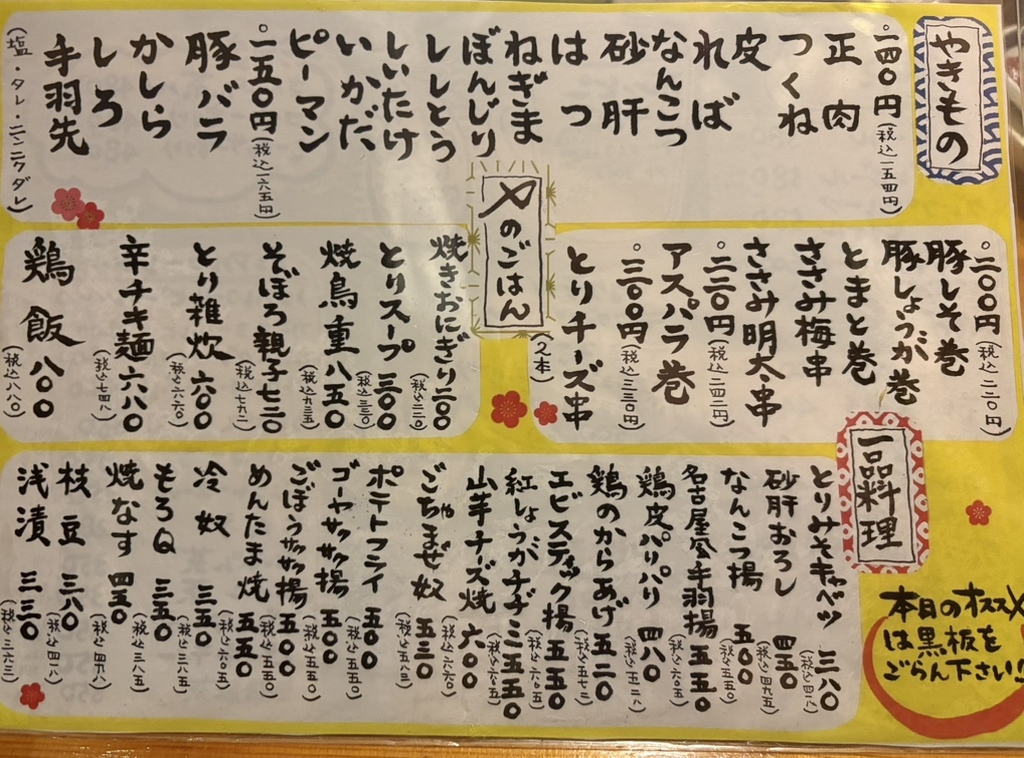 やきもの
。一四〇円(税込一五四円)
正肉
つくね
皮
ればー
なんこつ
砂肝
はつ
ねぎま
ぼんじり
ししとう
しいたけ
いかだ
ピーマン
。一五〇円(税込一六五円)
豚バラ
かしら
しろ
手羽先
(塩・タレ・ニンニクダレ)
。二〇〇円(税込二二〇円)
豚しそ巻
豚しょうが巻
とまと巻
ささみ梅串
ささみ明太串
。二二〇円(税込二四二円)
アスパラ巻
。三〇〇円(税込三三〇円)
とりチーズ串
(2本)
〆のごはん
焼きおにぎり二〇〇
(税込二二〇)
とりスープ三〇〇
(税込三三〇)
焼鳥重八五〇
(税込九三五)
そぼろ親子七二〇
(税込七九二)
とり雑炊六〇〇
(税込六六〇)
辛チキ麺六八〇
(税込七四八)
鶏飯八〇〇
(税込八八〇)
一品料理
とりみそキャベツ三八〇
(税込四一八)
砂肝おろし四五〇
(税込四九五)
なんこつ揚五〇〇
(税込五五〇)
名古屋风手羽揚五五〇
(税込六〇五)
鶏皮パリパリ四八〇
(税込五二八)
鶏のからあげ五二〇
(税込五七二)
エビスティック揚五五〇
(税込六〇五)
紅しょうがチヂミ五五〇
(税込六〇五)
山芋チーズ焼六〇〇
(税込六六〇)
ごちゃまぜ奴五三〇
(税込五八三)
ポテトフライ五〇〇
(税込五五〇)
ゴーヤサクサク揚五〇〇
(税込五五〇)
ごぼうサクサク揚五〇〇
(税込五五〇)
めんたま焼五五〇
(税込六〇五)
冷奴三五〇
(税込三八五)
もろQ三五〇
(税込三八五)
焼なす四五〇
(税込四九八)
枝豆三八〇
(税込四一八)
浅漬三三〇
(税込三六三)
本日のオススメ
は黒板を
ごらん下さい!!